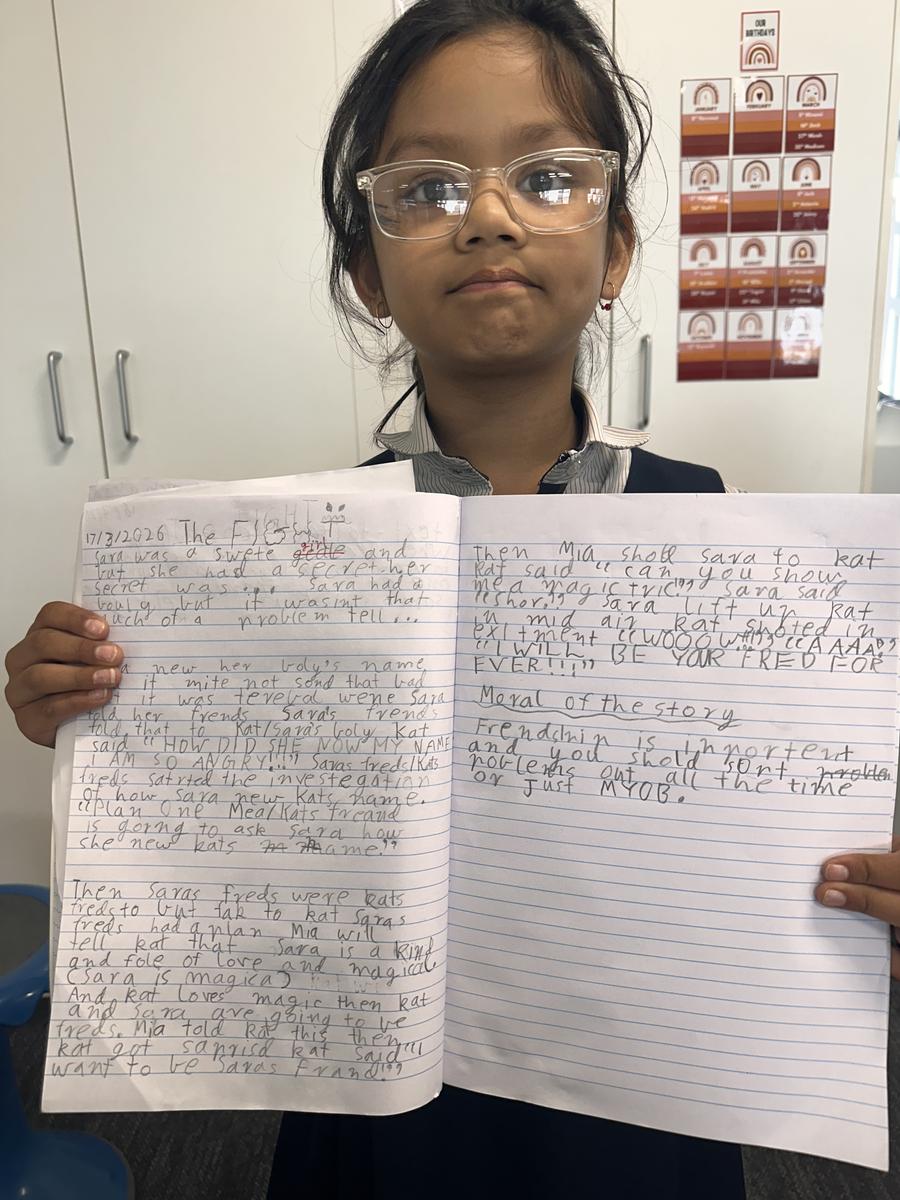 OUR
BIRTHDAYS
JANUARY
FEBRUARY
MARCH
APRIL
MAY
JUNE
JULY
AUGUST
SEPTEMBER
17/3/2026 The FIGHT
Sara was a swete girl and
but she had a secret. her
secret was.... Sara had a
bouly but it wasint that
much of a problem tell...
a new her boly's name
it mite not sond that bad
it was terebal wene Sara
told her frends Sara's frends
told that to Kat/Sara's boly Kat
said "HOW DID SHE NOW MY NAME
I AM SO ANGRY!!!" Saras freds/Kats
freds satrted the investegation
of how Sara new Kats name.
"Plan One Mea/Kats freand
is gorng to ask Sara how
she new kats name."
Then Saras freds were kats
freds to but fak to kat Saras
freds had a plan Mia will
tell kat that Sara is a kind
and fole of love and magical.
(Sara is magica)
And kat loves magic then kat
and Sara are going to be
freds. Mia told kat this then
kat got saprisd kat said "I
want to be Saras frand!"
Then Mia shold sara to kat
kat said "can you show
me a magic tric!" Sara said
"shor." Sara lift up kat
in mid air kat shoted in
exitment "WOOOW!!!" "AAAA"
"I WILL BE YOUR FRED FOR
EVER!!!"
Moral of the story
Frendship is inportent
and you shold sort problem
roblems out all the time
or just MYOB.